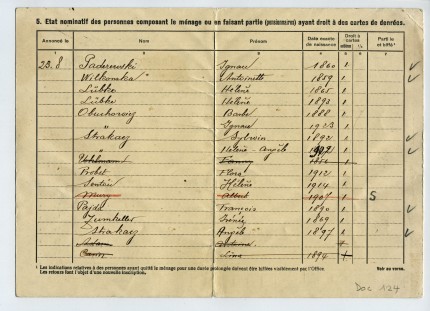 5. Etat nominatif des personnes composant le ménage ou en faisant partie (pensionnaires) ayant droit à des cartes de denrées.
Annoncé le Nom Prénom Date exacte de naissance Droit à cartes entières ½ Parti le et biffé¹
23.8 Paderewski Ignace 1860 1
Wilkonska Antoinette 1859 1
Lübke Helène 1865 1
Lübke Helène 1893 1
Obuchowicz 1888 1
" Ignace 1923 1
Strakacz Sylwin 1892 1
" Helène-Angèle 1
Uehlmann Fanny 1
Probst Flora 1912 1
Hélène 1914 1
Albert 1907 1 S
Pajda François 1890 1
Zumkeller Irénée 1869 1
Strakacz Angèle 1897 1
Adam
Lina 1894
¹ Les indications relatives à des personnes ayant quitté le ménage pour une durée prolongée doivent être biffées visiblement par l'Office.
Les retours font l'objet d'une nouvelle inscription.
Voir au verso.
Doc 124